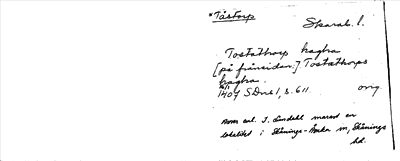 *Tåstorp
Skarab. l.
Tostathorp haghra
[på frånsidan:] Tostathorps
haghra.
1407 SDns 1, s. 611 orig
Noms enl. I. Lindahl marend en
lokalitet i Skånings-Åsaka sn, Skånings
hd.